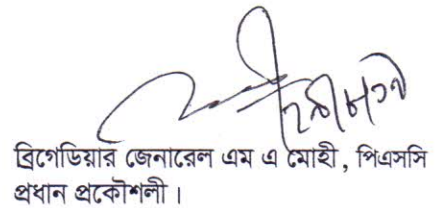 ব্রিগেডিয়ার জেনারেল এম এ মোহী , পিএসসি
প্রধান প্রকৌশলী ।